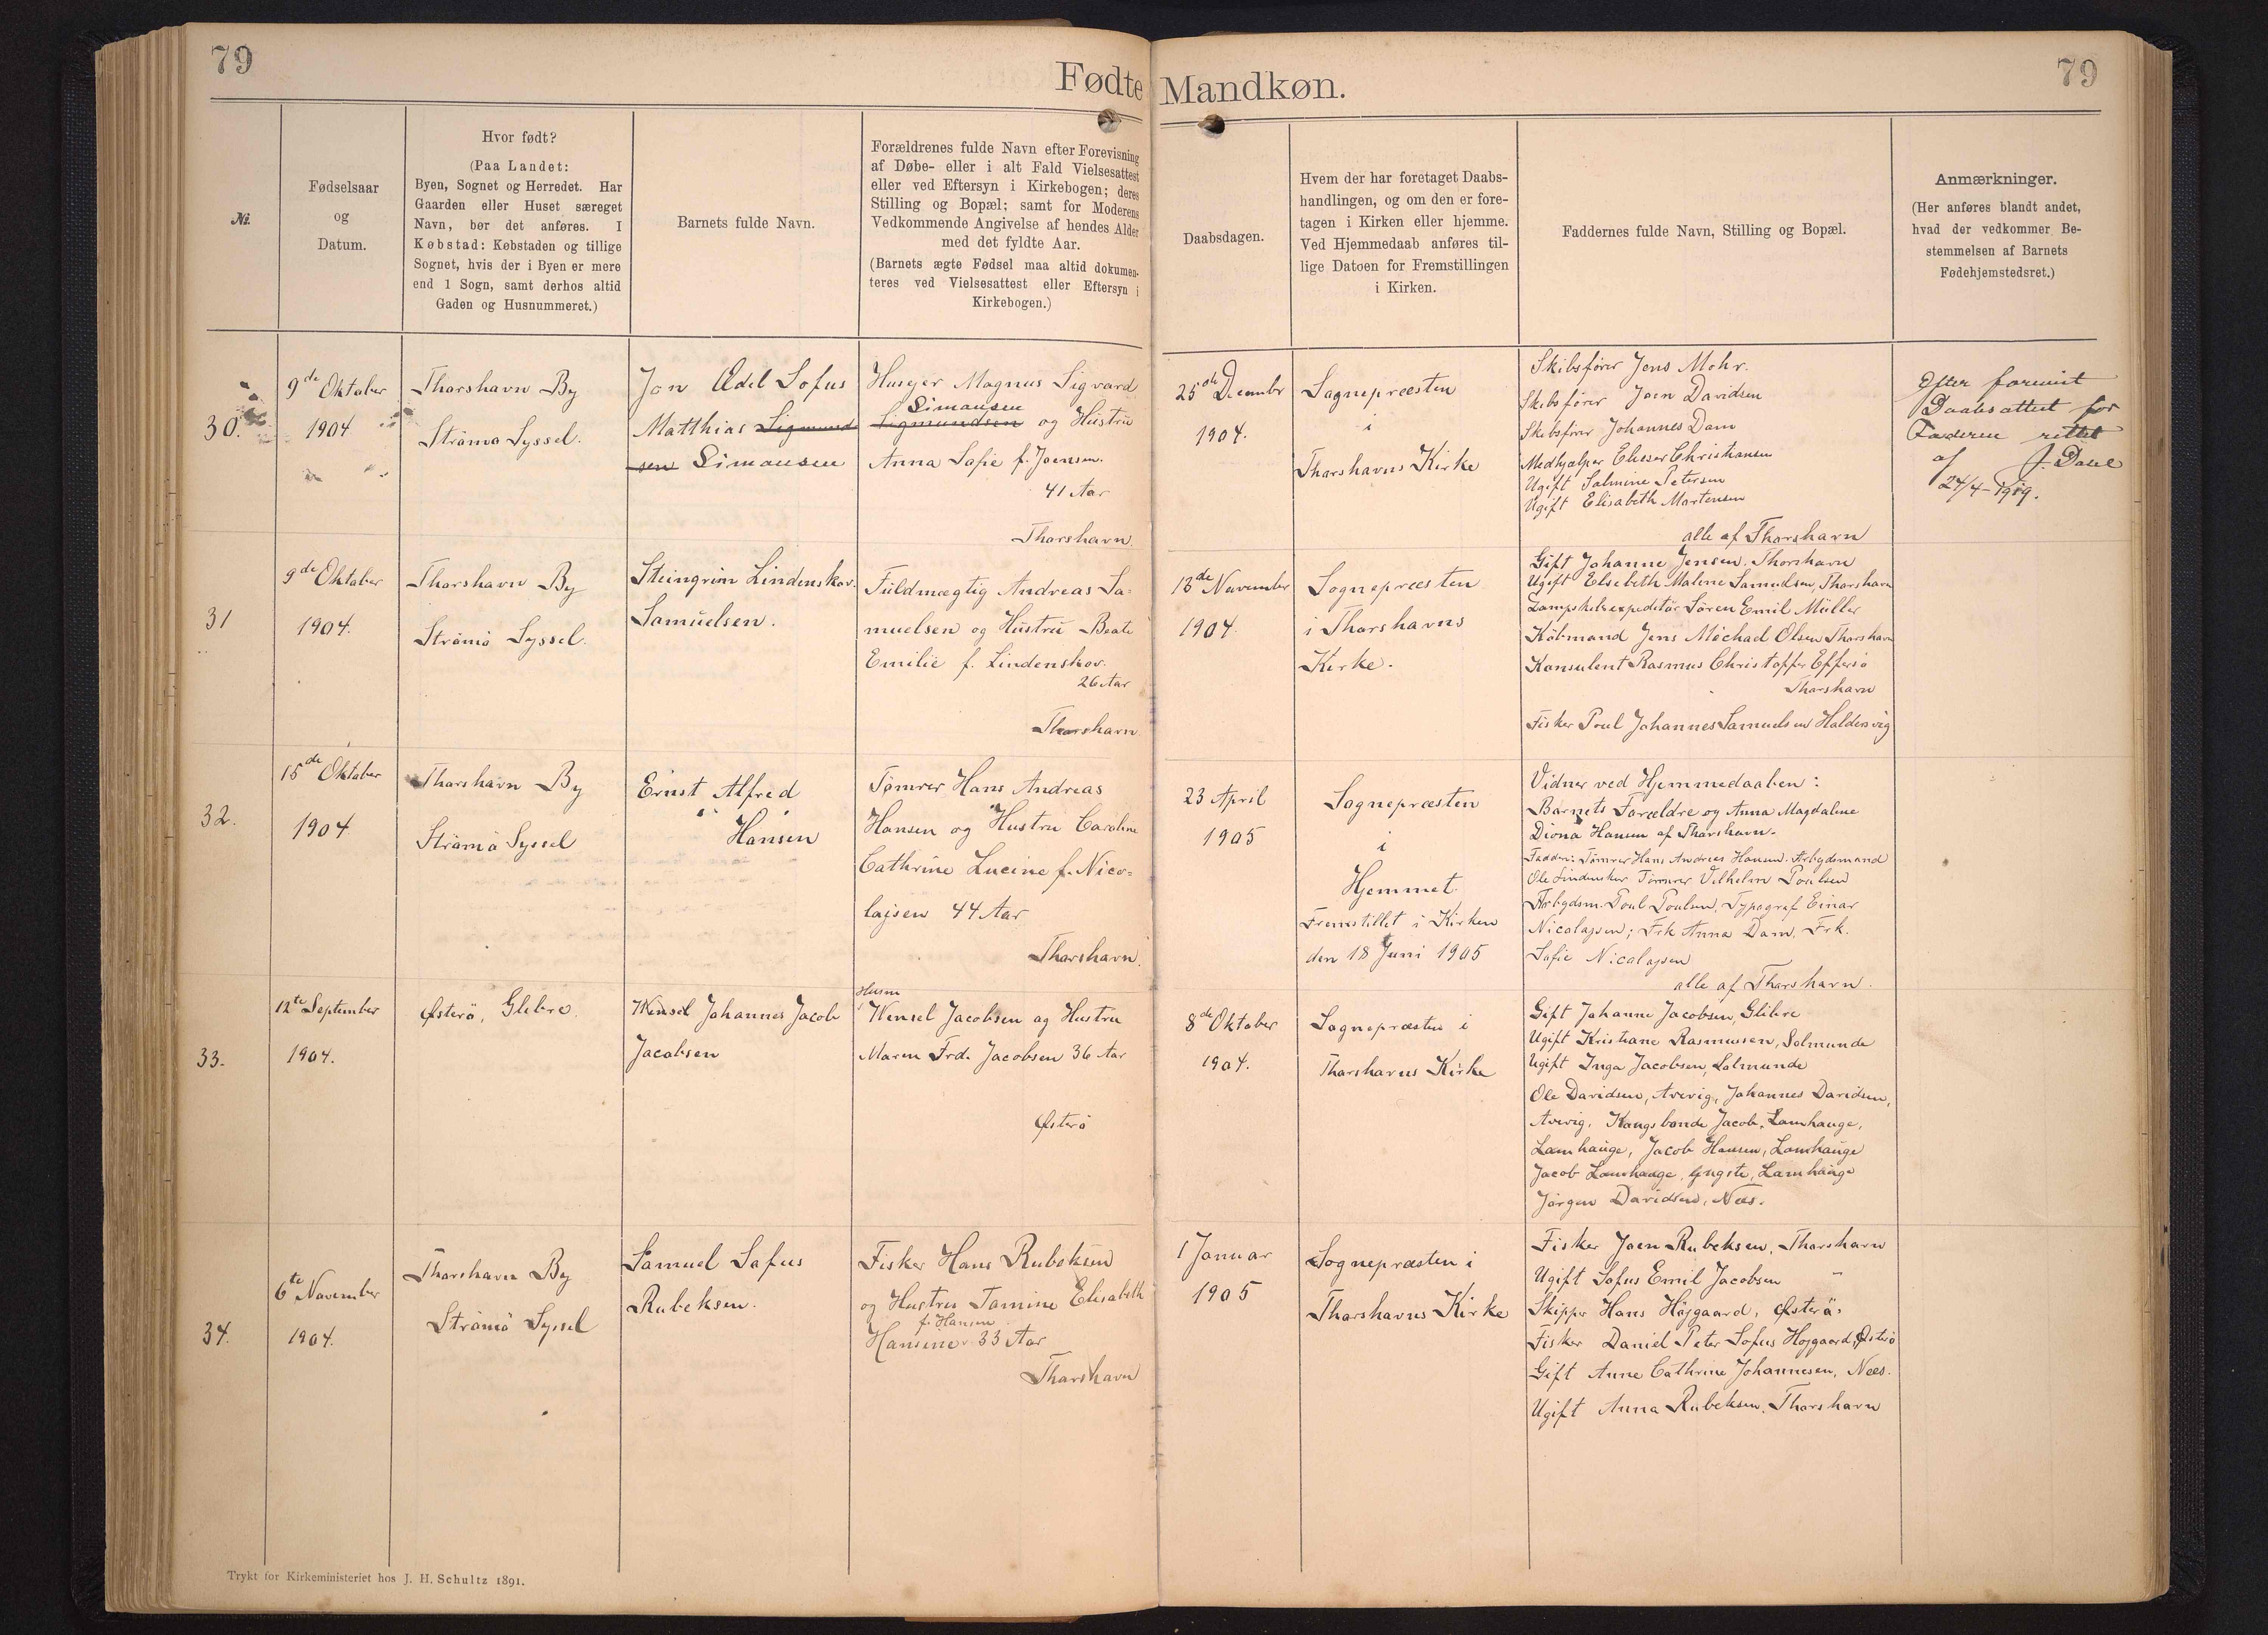 79
Fødte Mandkøn.
79
Nr.
Fødselsaar
og
Datum.
Hvor født?
(Paa Landet:
Byen, Sognet og Herredet. Har
Gaarden eller Huset særeget
Navn, bør det anføres. I
Købstad: Købstaden og tillige
Sognet, hvis der i Byen er mere
end 1 Sogn, samt derhos altid
Gaden og Husnummeret.)
Barnets fulde Navn.
Forældrenes fulde Navn efter Forevisning
af Døbe- eller i alt Fald Vielsesattest
eller ved Eftersyn i Kirkebogen; deres
Stilling og Bopæl; samt for Moderens
Vedkommende Angivelse af hendes Alder
med det fyldte Aar.
(Barnets ægte Fødsel maa altid dokumen-
teres ved Vielsesattest eller Eftersyn i
Kirkebogen.)
Daabsdagen.
Hvem der har foretaget Daabs-
handlingen, og om den er fore-
tagen i Kirken eller hjemme.
Ved Hjemmedaab anføres til-
lige Datoen for Fremstillingen
i Kirken.
Faddernes fulde Navn, Stilling og Bopæl.
Anmærkninger.
(Her anføres blandt andet,
hvad der vedkommer Be-
stemmelsen af Barnets
Fødehjemstedsret.)
30.
9de Oktober
1904
Thorshavn By
Strömö Syssel.
Jon Ædel Sofus
Matthias Sigmund
sen Simonsen
Husejer Magnus Sigvard
Simonsen
Sigmundsen og Hustru
Anna Sofie f. Joensen.
41 Aar
Thorshavn.
25de Decembr
1904.
Sognepræsten
i
Thorshavns Kirke
Skibsfører Jens Mohr.
Skibsfører Joen Davidsen
Skibsfører Johannes Dam
Medhjælper Elieser Christiansen
Ugift Salmine Petersen
Ugift Elisabeth Mortensen
alle af Thorshavn
Efter forevist
Daabsattest for
Faderen rettet
af J. Dahl
24/4-1919.
31
9de Oktober
1904.
Thorshavn By
Strömö Syssel.
Steingrim Lindenskov
Samuelsen.
Fuldmægtig Andreas Sa-
muelsen og Hustru Beate
Emilie f. Lindenskov.
26 Aar
Thorshavn
13de November
1904.
Sognepræsten
i Thorshavns
Kirke.
Gift Johanne Jensen. Thorshavn
Ugift Elsebeth Malene Samuelsen, Thorshavn
Dampskibsexpeditör Sören Emil Müller
Köbmand Jens Michael Olsen Thorshavn
Konsulent Rasmus Christoffer Effersö
Thorshavn
Fisker Poul Johannes Samuelsen Haldersvig
32.
15de Oktober
1904.
Thorshavn By
Strömö Syssel
Ernst Alfred
Hansen
Tømrer Hans Andreas
Hansen og Hustru Caroline
Cathrine Lucine f. Nico-
lajsen 44 Aar
Thorshavn.
23 April
1905
Sognepræsten
i
Hjemmet
Fremstillet i Kirken
den 18 Juni 1905
Vidner ved Hjemmedaaben:
Barnets Forældre og Anna Magdalene
Diona Hansen af Thorshavn.
Faddere: Tømrer Hans Andreas Hansen. Arbejdsmand
Ole Lindenskov Tømrer Vilhelm Poulsen
Arbejdsm. Poul Poulsen, Typograf Einar
Nicolajsen; Frk Anna Dam, Frk.
Sofie Nicolajsen
alle af Thorshavn.
33.
12te September
1904.
Østerö, Glibre.
Wensel Johannes Jacob
Jacobsen
Husm
Wensel Jacobsen og Hustru
Maren Frd. Jacobsen 36 Aar
Østerö
8de Oktober
1904.
Sognepræsten i
Thorshavns Kirke
Gift Johanne Jacobsen, Glibre
Ugift Kristiane Rasmussen, Solmunde
Ugift Inga Jacobsen, Solmunde
Ole Davidsen, Avevig, Johannes Davidsen,
Avevig. Kongsbonde Jacob, Lamhauge,
Lamhauge, Jacob Hansen, Lamhauge
Jacob Lamhauge, yngste, Lamhauge
Jörgen Davidsen, Næs.
34.
6te November
1904.
Thorshavn By
Strömö Syssel
Samuel Sofus
Rubeksen.
Fisker Hans Rubeksen
og Hustru Tomine Elisabeth
f. Hansen
Hansine 33 Aar
Thorshavn
1 Januar
1905
Sognepræsten i
Thorshavns Kirke
Fisker Joen Rubeksen, Thorshavn
Ugift Sofus Emil Jacobsen "
Skipper Hans Højgaard, Österö.
Fisker Daniel Peter Sofus Højgaard, Österö
Gift Anne Cathrine Johannesen, Næs.
Ugift Anna Rubeksen, Thorshavn
Trykt for Kirkeministeriet hos J. H. Schultz 1891.